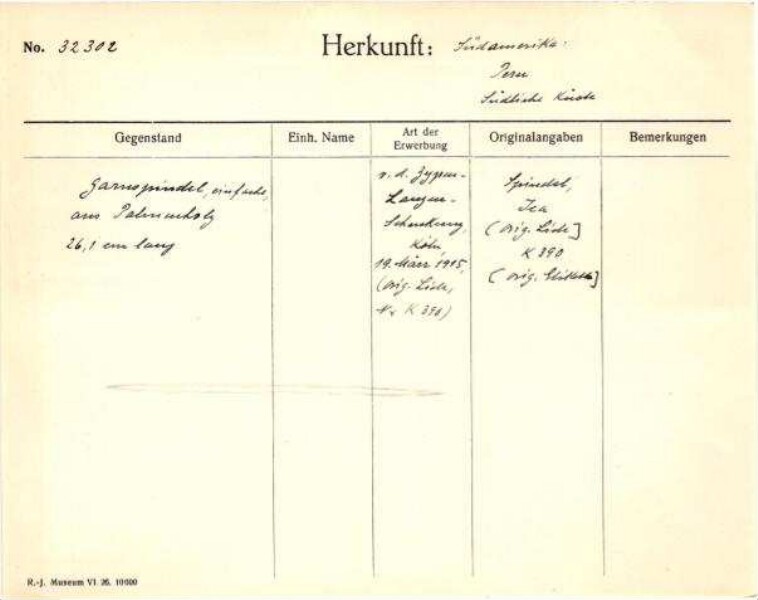 No. 32302
Herkunft: Südamerika:
Peru
Südliche Küste
Gegenstand
Einh. Name
Art der
Erwerbung
Originalangaben
Bemerkungen
Garnspindel, einfache,
aus Palmenholz
26,1 cm lang
v. d. Zypen-
Langen-
Schenkung,
Köln
19. März 1915,
(orig. Liste,
Nr K 390)
Spindel,
Ica
(orig. Liste]
K 390
(orig. Etikette]
R.-J. Museum VI 26. 10000